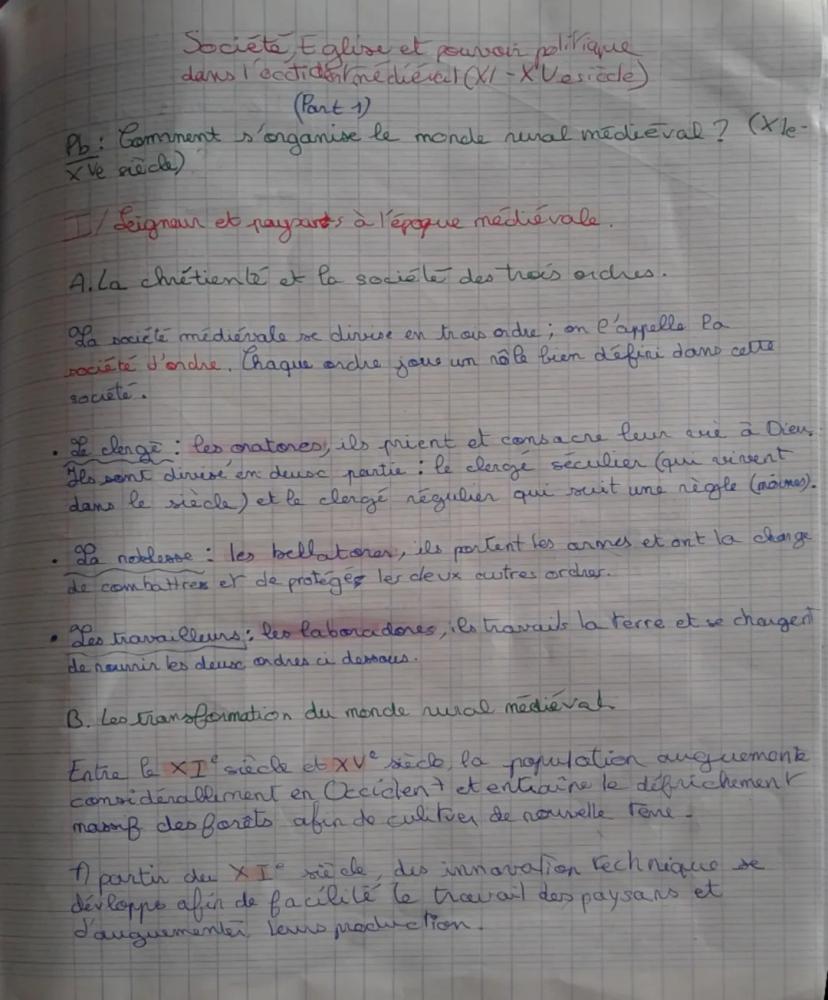 Société, Eglise et pouvoir politique
dans l'occident médiéval (XI - XVe siècle)
(Part 1)
Pb : Comment s'organise le monde rural médiéval ? (XIe-
XVe siècle)
I/ Seigneur et paysans à l'époque médiévale.
A. La chrétienté et la société des trois ordres.
La société médiévale se divise en trois ordre ; on l'appelle la
société d'ordre. Chaque ordre joue un rôle bien défini dans cette
société.
• Le clergé : les oratores, ils prient et consacre leur vie à Dieu.
Ils sont divisé en deux partie : le clergé séculier (qui vivent
dans le siècle) et le clergé régulier qui suit une règle (moines).
• La noblesse : les bellatores, ils portent les armes et ont la charge
de combattres et de protégés les deux autres ordres.
• Les travailleurs : les laboradores, ils travails la terre et se chargent
de nourrir les deux ordres ci dessous.
B. Les transformation du monde rural médiéval
Entre le XIe siècle et XVe siècle, la population auguemente
considérallement en Occident et entraîne le défrichement
massif des forêts afin de culitver de nouvelle terre.
A partir du XIe siècle, des innovation technique se
dévloppe afin de facilité le travail des paysans et
d'auguementer leurs production.